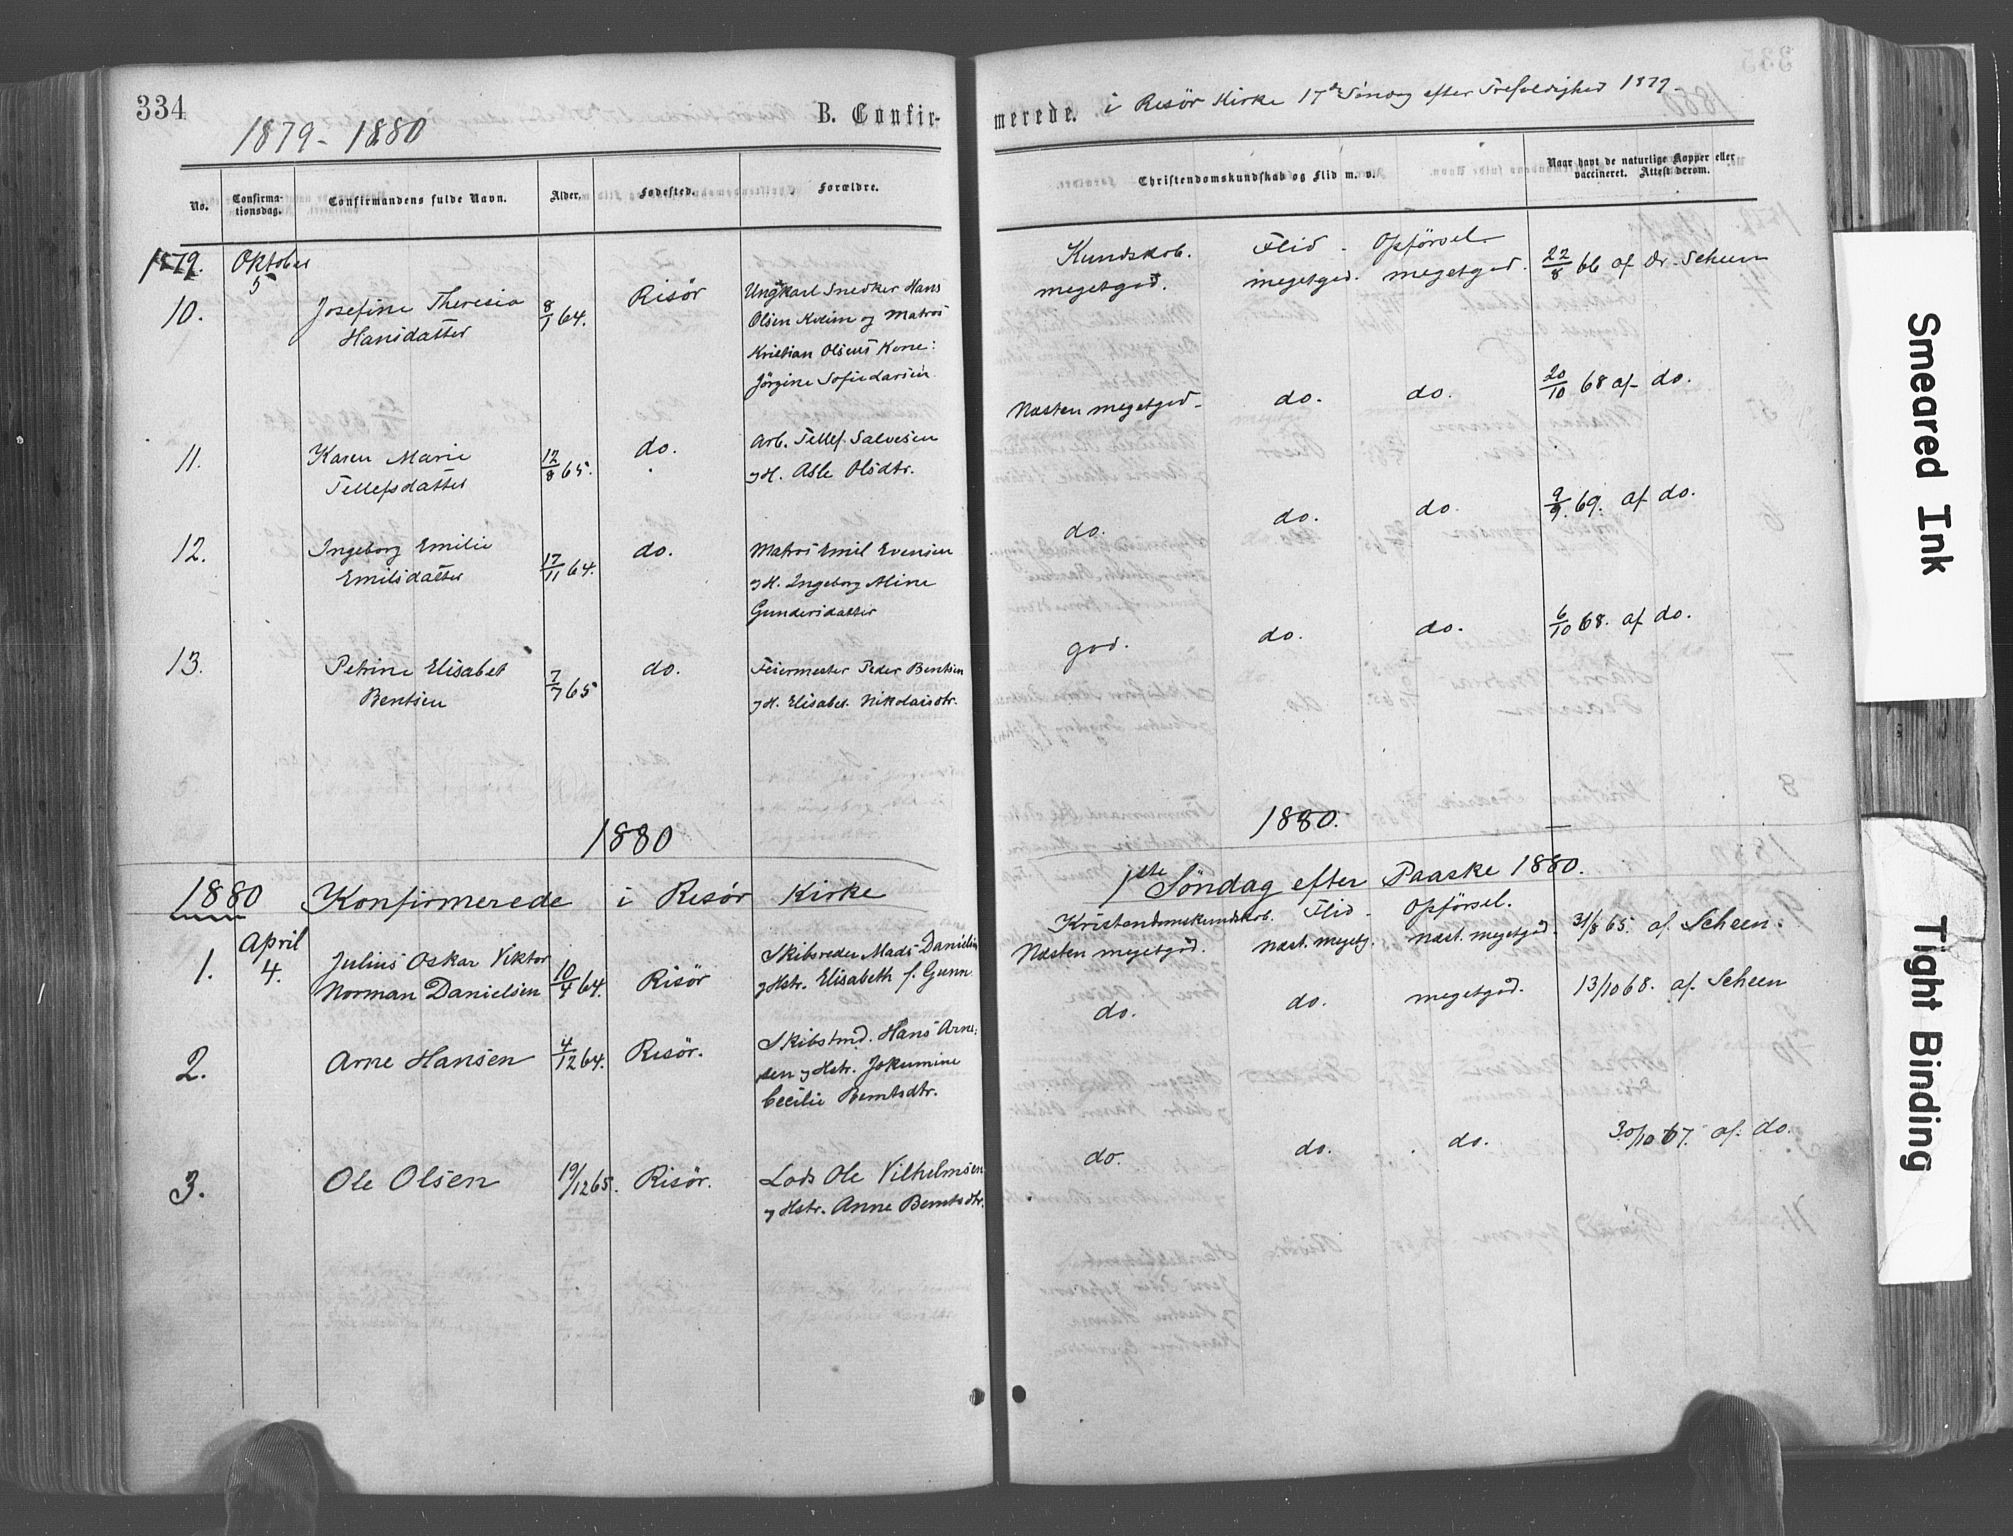 334
1879-1880
B. Confir-
merede. i Risör Kirke 17de Söndag efter Trefoldighed 1879.
No.
Confirma-
tionsdag.
Confirmandens fulde Navn.
Alder.
Fødested.
Forældre.
Christendomskundskab og Flid m. v.
Naar havt de naturlige Kopper eller
vaccineret. Attest derom.
1879. Oktober
5
Kundskab. Flid. Opförsel.
10. Josefine Theresia
Hansdatter
8/1 64. Risör
Ungkarl Snedker Hans
Olsen Kveim og Matros
Kristian Olsens Kone:
Jörgine Sofie Larsen.
megetgod. megetgod. megetgod. 22/8 66 af Dr. Scheen
11. Karen Marie
Tellefsdatter
12/8 65. do.
Arb. Tellef Salvesen
og H. Asle Olsdtr.
Næsten megetgod. do. do. 20/10 68 af do.
12. Ingeborg Emilie
Emilsdatter
17/11 64. do.
Matros Emil Evensen
og H. Ingeborg Aline
Gundersdatter
do. do. do. 9/9. 69. af do.
13. Petrine Elisabet
Bentsen
7/7 65 do.
Feiermester Peder Bentsen
og H. Elisabet Nikolaisdtr.
god. do. do. 6/10 68. af do.
1880
1880.
1880 Konfirmerede i Risör Kirke
1ste Söndag efter Paaske 1880.
Kristendomskundskab. Flid. Opförsel.
April
4.
1. Julius Oskar Viktor
Norman Danielsen
10/4 64. Risör
Skibsreder Mads Danielsen
og Hstr. Elisabeth f. Gunn
Næsten megetgod. Næst. megetg. Næst. megetgod. 31/8 65. af Scheen.
2. Arne Hansen
4/12 64. Risör.
Skibstmd. Hans Arne-
sen og Hstr. Jokumine
Cecilie Berntsdtr.
do. do. megetgod. 13/10 68. af Scheen
3. Ole Olsen
19/12 65. Risör.
Lods Ole Vilhelmsen
og Hstr. Anne Berntsdtr.
do. do. do. 30/10 67. af do.
Smeared Ink
Tight Binding